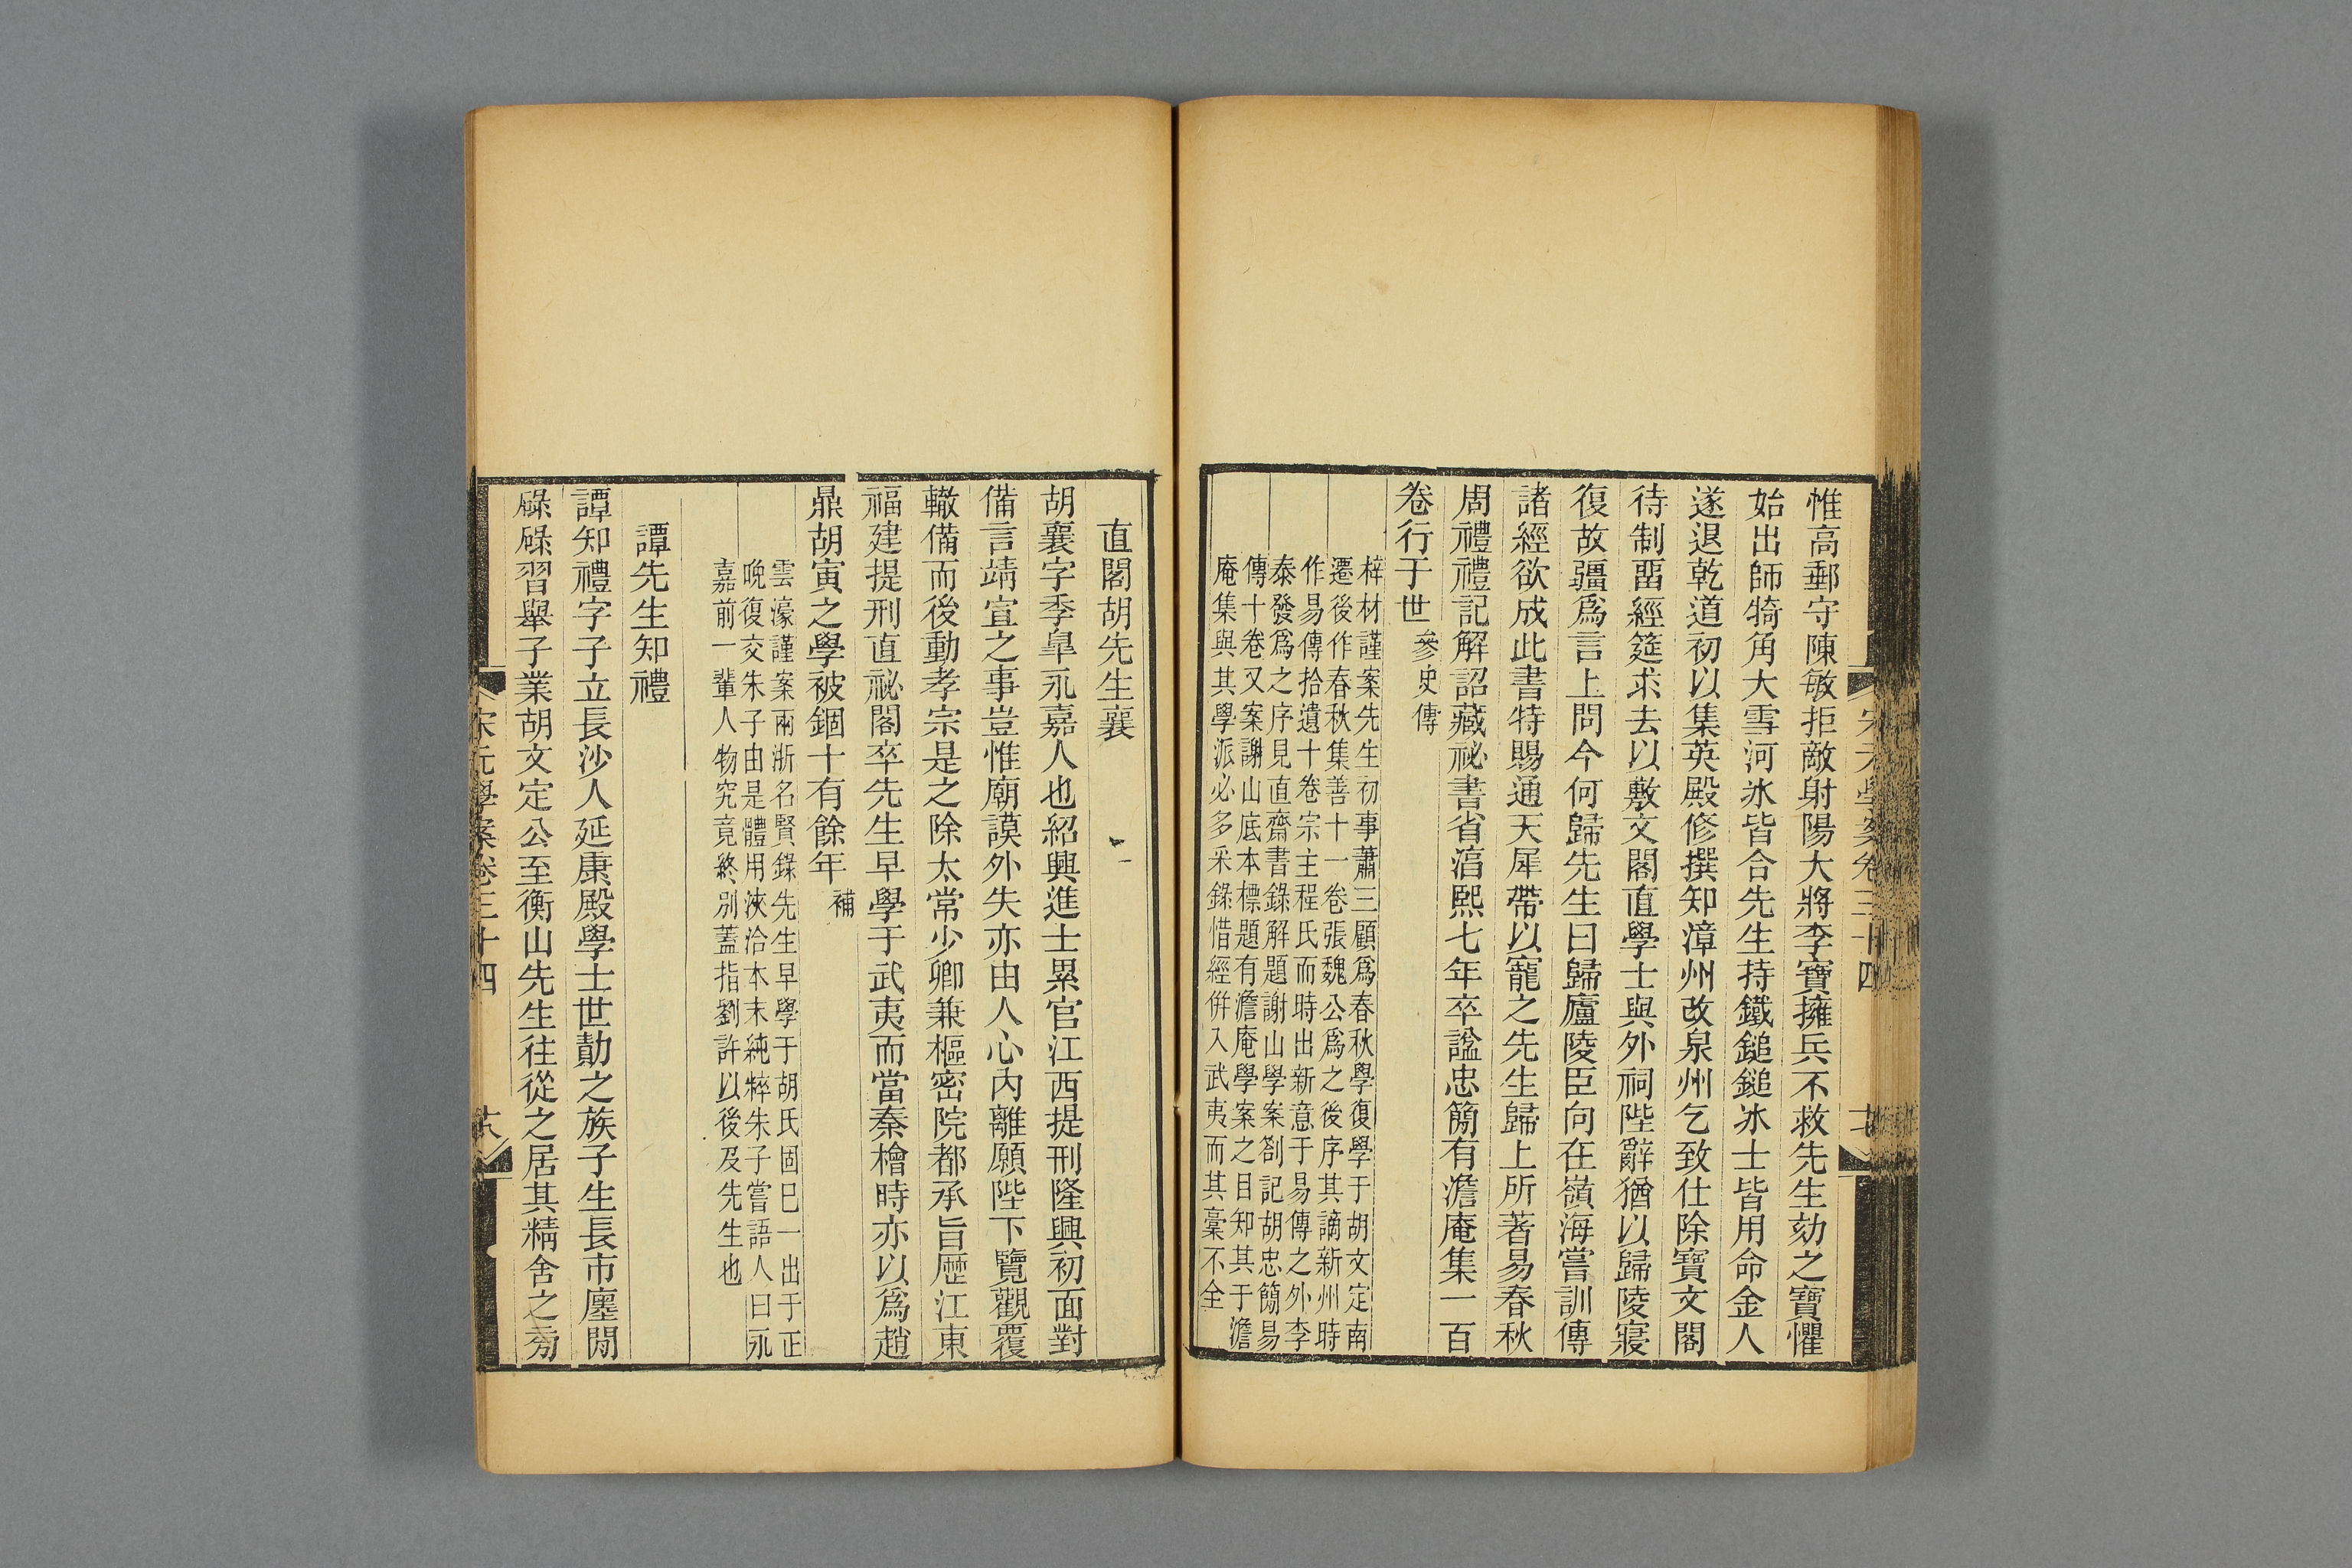 惟高郵守陳敏拒敵射陽大將李寶擁兵不救先生劾之寶懼
始出師犄角大雪河冰皆合先生持鐵鎚鎚冰士皆用命金人
遂退乾道初以集英殿修撰知漳州改泉州乞致仕除寶文閣
待制畱經筵求去以敷文閣直學士與外祠陛辭猶以歸陵寢
復故疆爲言上問今何歸先生曰歸廬陵臣向在嶺海嘗訓傳
諸經欲成此書特賜通天犀帶以寵之先生歸上所著易春秋
周禮禮記解詔藏祕書省湻熙七年卒諡忠簡有澹庵集一百
卷行于世參史傳
梓材謹案先生初事蕭三顧爲春秋學復學于胡文定南
遷後作春秋集善十一卷張魏公爲之後序其謫新州時
作易傳拾遺十卷宗主程氏而時出新意于易傳之外李
泰發爲之序見直齋書錄解題謝山學案劄記胡忠簡易
傳十卷又案謝山底本標題有澹庵學案之目知其于澹
庵集與其學派必多采錄惜經併入武夷而其稾不全
宋元學案卷三十四
直閣胡先生襄
胡襄字季皐永嘉人也紹興進士累官江西提刑隆興初面對
備言靖宣之事豈惟廟謨外失亦由人心內離願陛下覽觀覆
轍備而後動孝宗是之除太常少卿兼樞密院都承旨歷江東
福建提刑直祕閣卒先生早學于武夷而當秦檜時亦以爲趙
鼎胡寅之學被錮十有餘年補
雲濠謹案兩浙名賢錄先生早學于胡氏固已一出于正
晚復交朱子由是體用浹洽本末純粹朱子嘗語人曰永
嘉前一輩人物究竟終別蓋指劉許以後及先生也
譚先生知禮
譚知禮字子立長沙人延康殿學士世勣之族子生長市廛閒
碌碌習舉子業胡文定公至衡山先生往從之居其精舍之旁
宋元學案卷三十四